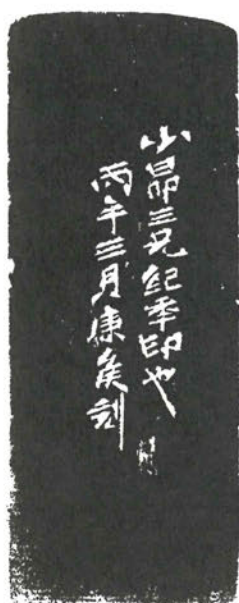 小昴三兄紀秊印也
丙午三月康侯刻